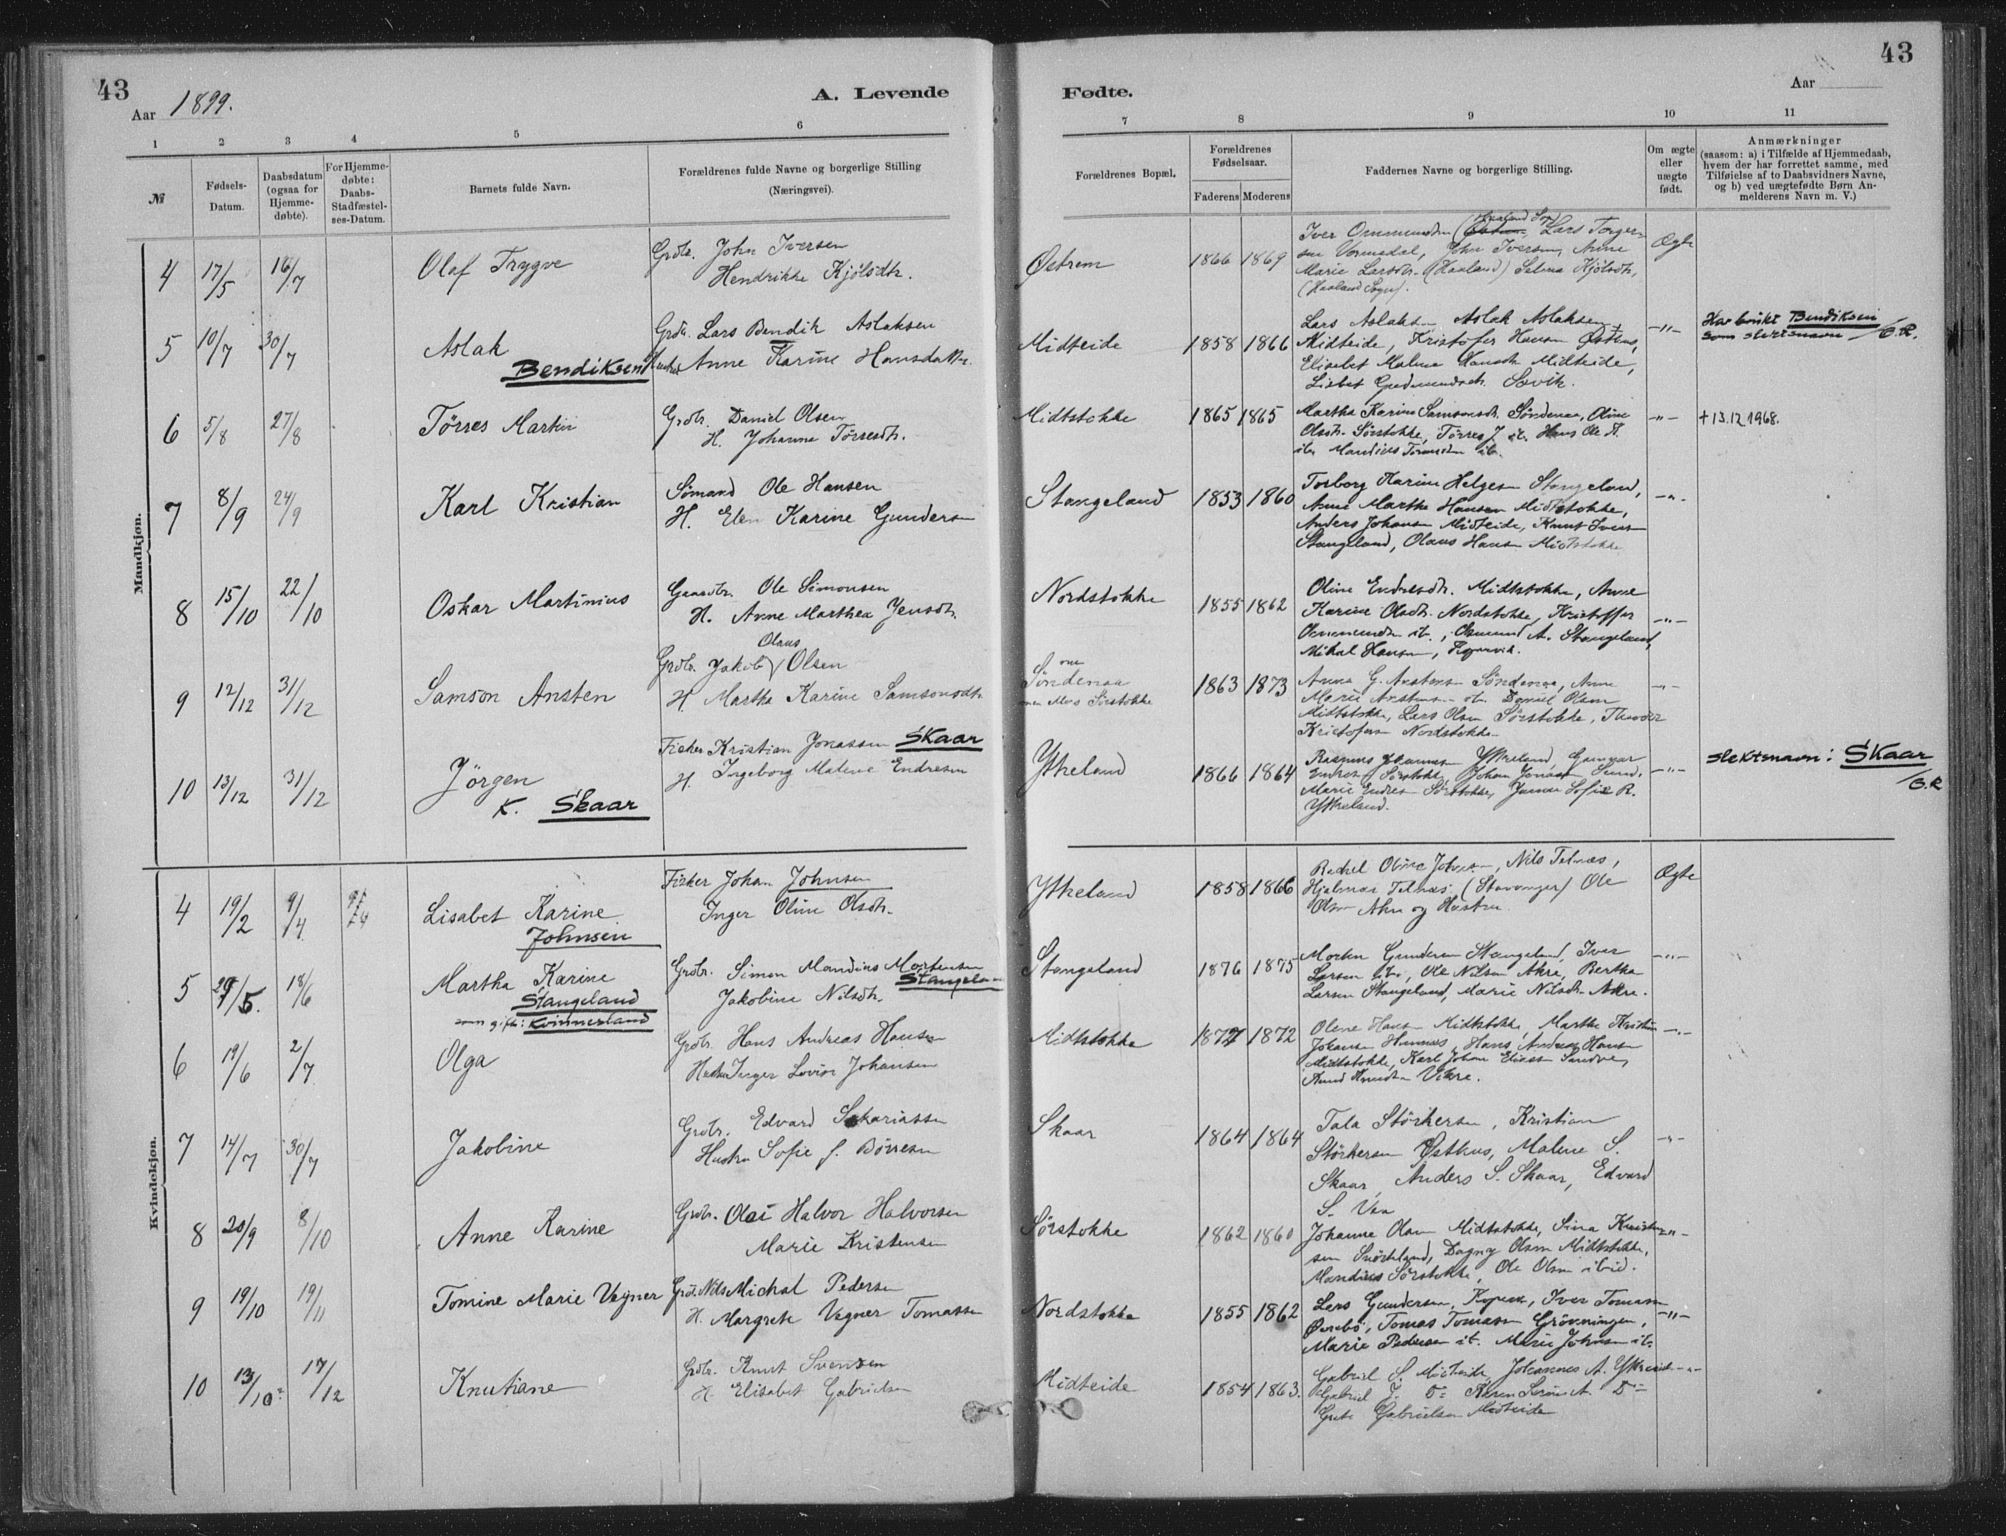 43
Aar 1899.
A. Levende
Fødte.
Aar
43
1 2 3 4 5 6 7 8 9 10 11
№
Fødsels-
Datum.
Daabsdatum
(ogsaa for
Hjemme-
døbte).
For Hjemme-
døbte:
Daabs-
Stadfæstel-
ses-Datum.
Barnets fulde Navn.
Forældrenes fulde Navne og borgerlige Stilling
(Næringsvei).
Forældrenes Bopæl.
Forældrenes
Fødselsaar.
Faderens Moderens
Faddernes Navne og borgerlige Stilling.
Om ægte
eller
uægte
født.
Anmærkninger
(saasom: a) i Tilfælde af Hjemmedaab,
hvem der har forrettet samme, med
Tilføielse af to Daabsvidners Navne,
og b) ved uægtefødte Børn An-
melderens Navn m. V.)
Mandkjøn.
4 17/5 16/7 Olaf Trygve
Grdbr. John Iversen
Hendrikke Kjølsdtr.
Østrem 1866 1869
Iver Ommundsen Lars Torger-
sen Vormedal, John Iversen, Anne
Marie Larsdtr. (Haaland) Selma Kjølsdtr.
(Haaland Sogn).
Ægte
5 10/7 30/7 Aslak
Bendiksen
Grdbr. Lars Bendik Aslaksen
Hustru Anne Karine Hansdatter
Midteide 1858 1866
Lars Aslaksen Aslak Aslaksen
Midteide, Kristofer Hansen Østhus,
Elisabet Malene Hansdtr Midteide,
Lisbet Gudmundsdtr. Sævik.
-"-
Har brukt Bendiksen
som slektsnavn /G.R.
6 5/8 27/8 Tørres Martin
Grdbr. Daniel Olsen
H. Johanne Tørresdtr.
Midtstokke 1865 1865
Martha Karine Samsonsdtr. Søndenaa, Oline
Olsdtr. Sørstokke, Tørres J. ib. Hans Ole
ib. Mandius ib.
-"-
+ 13.12.1968.
7 8/9 24/9 Karl Kristian
Sømand Ole Hansen
H. Elen Karine Gundersen
Stangeland 1853 1860
Torborg Karine Helgesen Stangeland,
Anne Martha Hansen Midtstokke,
Anders Johansen Midteide, Knut Iversen
Stangeland, Olaus Hansen Midtstokke
-"-
8 15/10 22/10 Oskar Martinius
Gaardbr. Ole Simonsen
H. Anne Marthea Jensdtr.
Nordstokke 1855 1862
Oline Endresdtr. Midtstokke, Anne
Karine Olsdtr. Nordstokke, Kristoffer
Ommundsen ib., Osmund A. Stangeland,
Mikal Hansen,
-"-
9 12/12 31/12 Samson Ansten
Olaus
Grdbr. Jakob Olsen
H Martha Karine Samsonsdtr
Søndenaa
Sørstokke
1863 1873
Anna G. Anstensen Søndenaa, Anne
Marie Anstensen ib. Daniel Olsen
Midtstokke, Lars Olsen Sørstokke, Theodor
Kristofersen Nordstokke
-"-
10 13/12 31/12 Jörgen
K. Skaar
Fisker Kristian Jonassen Skaar
H. Ingeborg Malene Endresen
Ytreland 1866 1864
Rasmus Ytreland, Gunvar
Endresen Sørstokke, Johan Jonassen
Marie Endresen Sørstokke, Sofie R.
Ytreland.
-"-
Slektsnavn: Skaar
/G.R
Kvindekjøn.
4 19/2 9/4 Lisabet Karine
Johnsen
Fisker Johan Johnsen
Inger Oline Olsdtr.
Ytreland 1858 1866
Rachel Oline Johnsen, Nils Telnæs,
Hjelmar Telnæs (Stavanger) Ole
Olsen Akre og Hustru
Ægte
5 29/5 18/6 Martha Karine
Stangeland
som gift: Kvinnerland
Grdbr. Simon Mandius Mortensen
Stangeland
Jakobine Nilsdtr.
Stangeland 1876 1875
Morten Gundersen Stangeland, Iver
Larsen ib., Ole Nilsen Akre, Bertha
Larsen Stangeland, Marie Nilsdtr. Akre.
-"-
6 19/6 2/7 Olga
Grdbr. Hans Andreas Hansen
Hustru Inger Lovise Johansen
Midtstokke 1872 1872
Olene Hansen Midtstokke, Martha Kristine
Johansen Hans Andreas Hansen
Midtstokke, Karl Johan Eliassen Sandve,
Knud Knudsen Vikre.
-"-
7 14/7 30/7 Jakobine
Grdbr. Edvard Sakariassen
Hustru Sofie J. Børresen
Skaar 1864 1864
Tala Størkersen, Kristian
Størkersen Østhus, Malene S.
Skaar, Anders S. Skaar, Edvard
S. Vaa
-"-
8 20/9 8/10 Anne Karine
Grdbr. Olai Halvor Halvorsen
Marie Kristensen
Sørstokke 1862 1860
Johanne Olsen Midtstokke, Sina Kristen-
sen Dagny Olsen Midtstokke,
Mandius Sørstokke, Ole Olsen ibid.
-"-
9 19/10 19/11 Tomine Marie Vegner
Grdbr. Nils Michal Pedersen
H. Margrete Vegner Tomassen
Nordstokke 1855 1862
Lars Gundersen, Iver Tomassen
Øvrebø, Tomas Tomassen Grövningen,
Marie Pedersen ib. Marie Johnsen ib.
-"-
10 13/10 17/12 Knutiane
Grdbr. Knut Svensen
H Elisabet Gabrielsen
Midteide 1854 1863.
Gabriel S. Midteide, Johannes A. Ytreland
Gabriel J. Do Karen Serine A. Do
Grete Gabrielsen Midteide
-"-